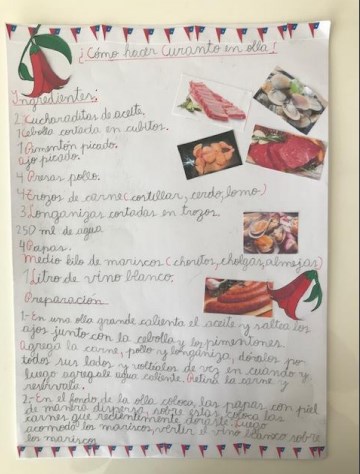 ¿Cómo hacer Curanto en olla!
Ingredientes:
2 Cucharaditas de aceite,
1 Cebolla cortada en cubitos.
1 Pimentón picado.
Ajo picado.
4 Presas pollo.
4 Trozos de carne (costillar, cerdo, lomo.)
3 Longanizas cortadas en trozos
250 ml de agua
4 Papas.
Medio kilo de mariscos (choritos, cholgas, almejas)
1 Litro de vino blanco.
Preparacion
1.- En una olla grande calienta el aceite y saltea los
ajos junto con la cebolla y los pimentones.
Agrega la carne, pollo y longaniza, dóralos por
todos sus lados y voltíalos de vez en cuándo y
luego agregale agua caliente. Retira la carne y
resérvala.
2.- En el fondo de la olla coloca las papas, con piel
de manera dispersa, sobre estas coloca las
carnes que recientemente doraste. Luego
acomoda los mariscos, vertir el vino blanco sobre
los mariscos